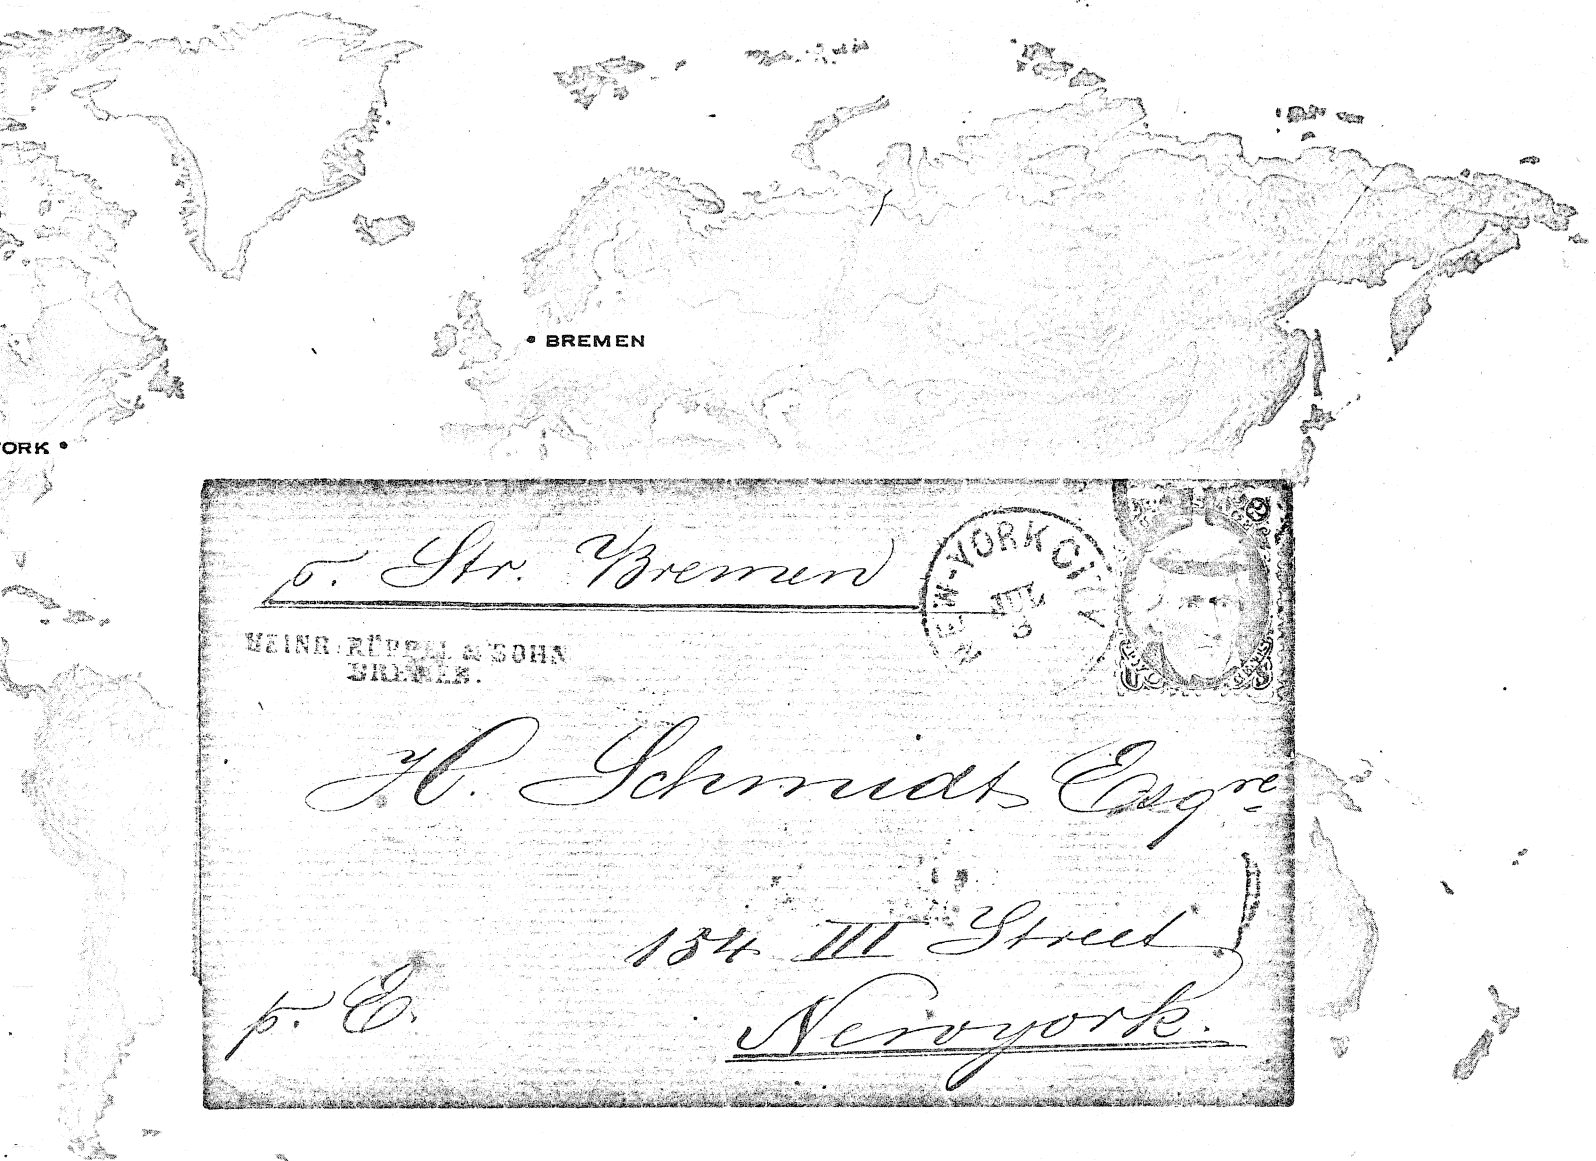 BREMEN
ORK
p. Str. Bremen
NEW-YORK CI
JUL
HEINR. RÜPPEL & SOHN
BREMEN.
H. Schmidt Esqre
154 III Street
p. E.
Newyork.